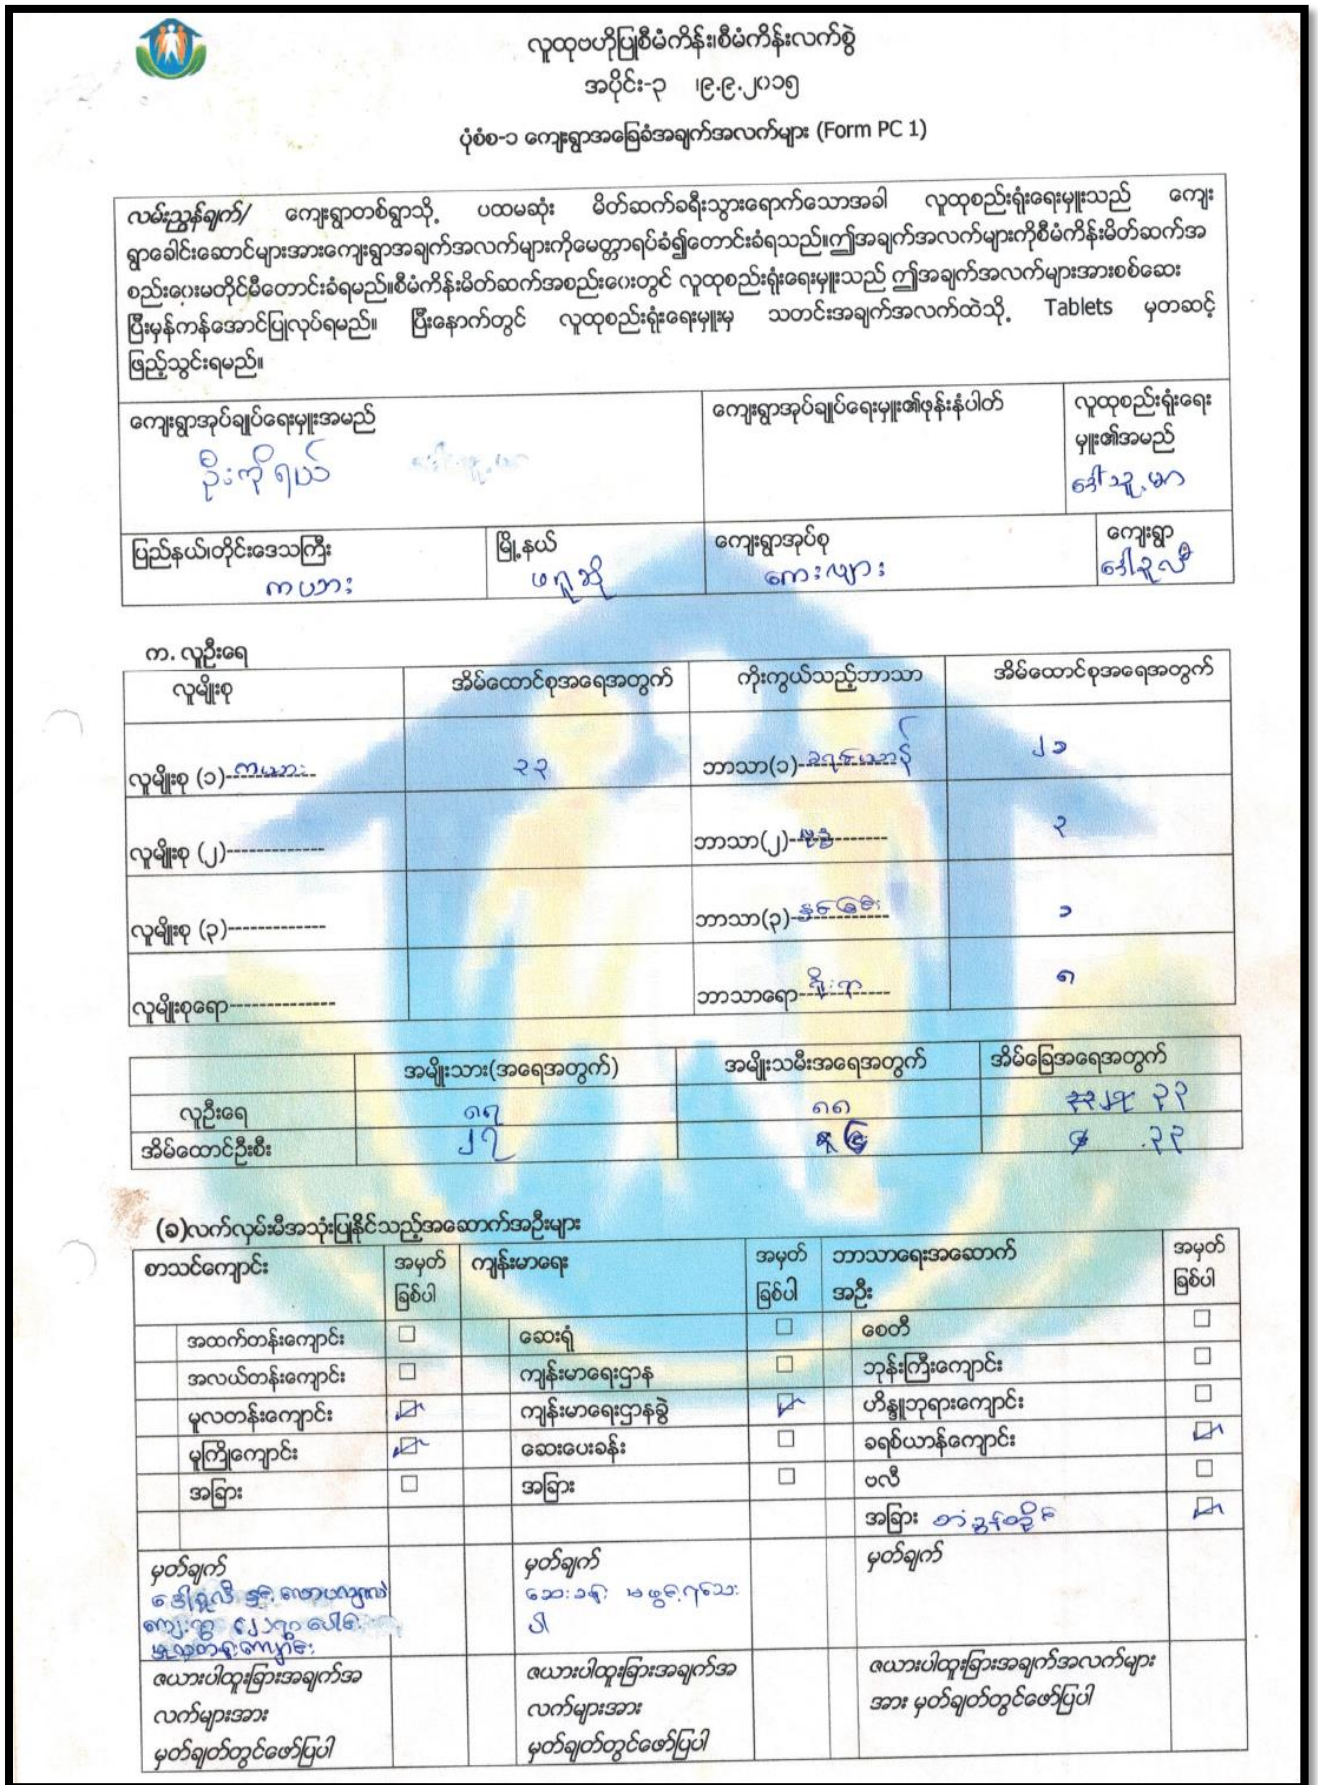 လူထုဗဟိုပြုစီမံကိန်း၊စီမံကိန်းလက်စွဲ
အပိုင်း-၃ ၊၉.၉.၂၀၁၅
ပုံစံစ-၁ ကျေးရွာအခြေခံအချက်အလက်များ (Form PC 1)
လမ်းညွှန်ချက်/ ကျေးရွာတစ်ရွာသို့ ပထမဆုံး မိတ်ဆက်ခရီးသွားရောက်သောအခါ လူထုစည်းရုံးရေးမှူးသည် ကျေး
ရွာခေါင်းဆောင်များအားကျေးရွာအချက်အလက်များကိုမေတ္တာရပ်ခံ၍တောင်းခံရသည်။ဤအချက်အလက်များကိုစီမံကိန်းမိတ်ဆက်အ
စည်းဝေးမတိုင်မီတောင်းခံရမည်။စီမံကိန်းမိတ်ဆက်အစည်းဝေးတွင် လူထုစည်းရုံးရေးမှူးသည် ဤအချက်အလက်များအားစစ်ဆေး
ပြီးမှန်ကန်အောင်ပြုလုပ်ရမည်။ ပြီးနောက်တွင် လူထုစည်းရုံးရေးမှူးမှ သတင်းအချက်အလက်ထဲသို့ Tablets မှတဆင့်
ဖြည့်သွင်းရမည်။
ကျေးရွာအုပ်ချုပ်ရေးမှူးအမည် ကျေးရွာအုပ်ချုပ်ရေးမှူး၏ဖုန်းနံပါတ် လူထုစည်းရုံးရေး
မှူး၏အမည်
ဦးကိုရယ် ဒေါ်သူ့မာ
ပြည်နယ်၊တိုင်းဒေသကြီး မြို့နယ် ကျေးရွာအုပ်စု ကျေးရွာ
ကယား ဖရူဆို ကေးလျား
က. လူဦးရေ
လူမျိုးစု အိမ်ထောင်စုအရေအတွက် ကိုးကွယ်သည့်ဘာသာ အိမ်ထောင်စုအရေအတွက်
လူမျိုးစု (၁)-ကယား ၃၃ ဘာသာ(၁)-ခရစ်ယာန် ၂၁
လူမျိုးစု (၂)------------- ဘာသာ(၂)-ဗုဒ္ဓ ၃
လူမျိုးစု (၃)------------- ဘာသာ(၃)-နှစ်ခြင်း ၁
လူမျိုးစုရော-------------- ဘာသာရော-ရိုးရာ ၈
အမျိုးသား(အရေအတွက်) အမျိုးသမီးအရေအတွက် အိမ်ခြေအရေအတွက်
လူဦးရေ ၈၇ ၈၈ ၃၃
အိမ်ထောင်ဦးစီး ၂၇ ၃၃
(ခ)လက်လှမ်းမီအသုံးပြုနိုင်သည့်အဆောက်အဦးများ
စာသင်ကျောင်း အမှတ်ခြစ်ပါ ကျန်းမာရေး အမှတ်ခြစ်ပါ ဘာသာရေးအဆောက်အဦး အမှတ်ခြစ်ပါ
အထက်တန်းကျောင်း ဆေးရုံ စေတီ
အလယ်တန်းကျောင်း ကျန်းမာရေးဌာန ဘုန်းကြီးကျောင်း
မူလတန်းကျောင်း ကျန်းမာရေးဌာနခွဲ ဟိန္ဒူဘုရားကျောင်း
မူကြိုကျောင်း ဆေးပေးခန်း ခရစ်ယာန်ကျောင်း
အခြား အခြား ဗလီ
အခြား တံခွန်တိုင်
မှတ်ချက် မှတ်ချက် မှတ်ချက်
ဆေးခန်း မဖွင့်ရသေး
ပါ
ဇယားပါထူးခြားအချက်အ ဇယားပါထူးခြားအချက်အ ဇယားပါထူးခြားအချက်အလက်များ
လက်များအား လက်များအား အား မှတ်ချတ်တွင်ဖော်ပြပါ
မှတ်ချတ်တွင်ဖော်ပြပါ မှတ်ချတ်တွင်ဖော်ပြပါ